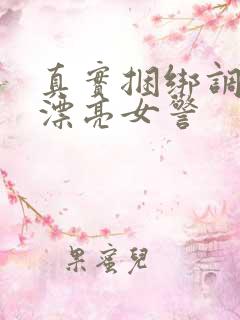 真實捆綁調
漂亮女警
果蜜兒